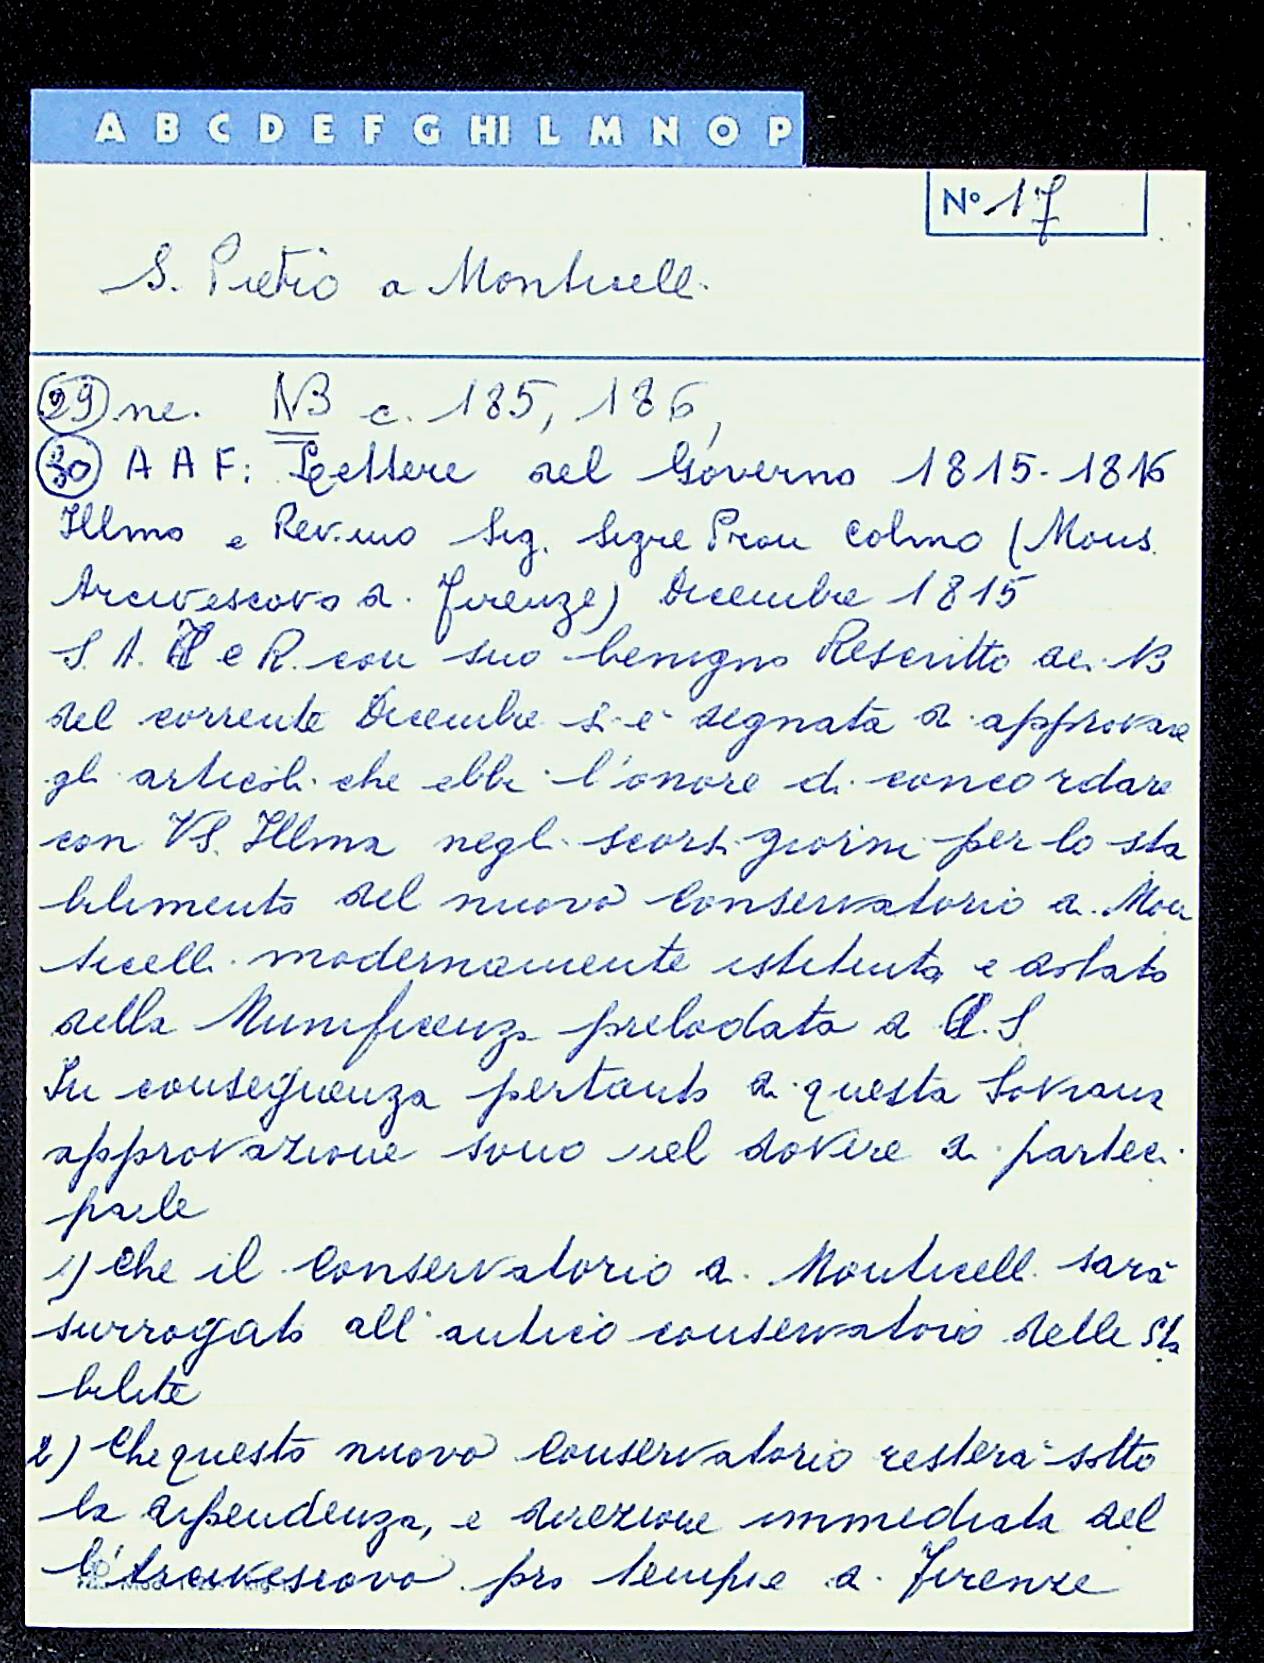 A B C D E F G HI L M N O P
N° 17
S. Pietro a Monticelli
29 ne. NB c. 185, 186,
30 A A F: Lettere del Governo 1815-1816
Illmo e Rev.mo Sig. Sigre Pron Colmo (Mons.
Arcivescovo di Firenze) Dicembre 1815
S. A. I e R. con suo benigno Rescritto dei 13
del corrente Dicembre si è degnata di approvare
gli articoli che ebbi l'onore di concordare
con VS. Illma negli scorsi giorni per lo sta
bilimento del nuovo Conservatorio di Mon
ticelli modernamente istituito e dotato
della Munificenza prelodata di A. S.
In conseguenza pertanto di questa Sovrana
approvazione sono nel dovere di parteci
parle
1) Che il Conservatorio di Monticelli sarà
surrogato all'antico conservatorio delle Sta
bilite
2) Che questo nuovo Conservatorio resterà sotto
la dipendenza, e direzione immediata del
l'Arcivescovo pro tempre di Firenze